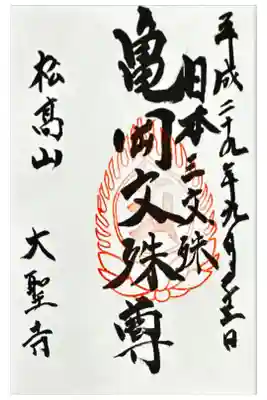 平成二十九年九月三日
日本三文殊
亀岡文殊尊
松高山
大聖寺